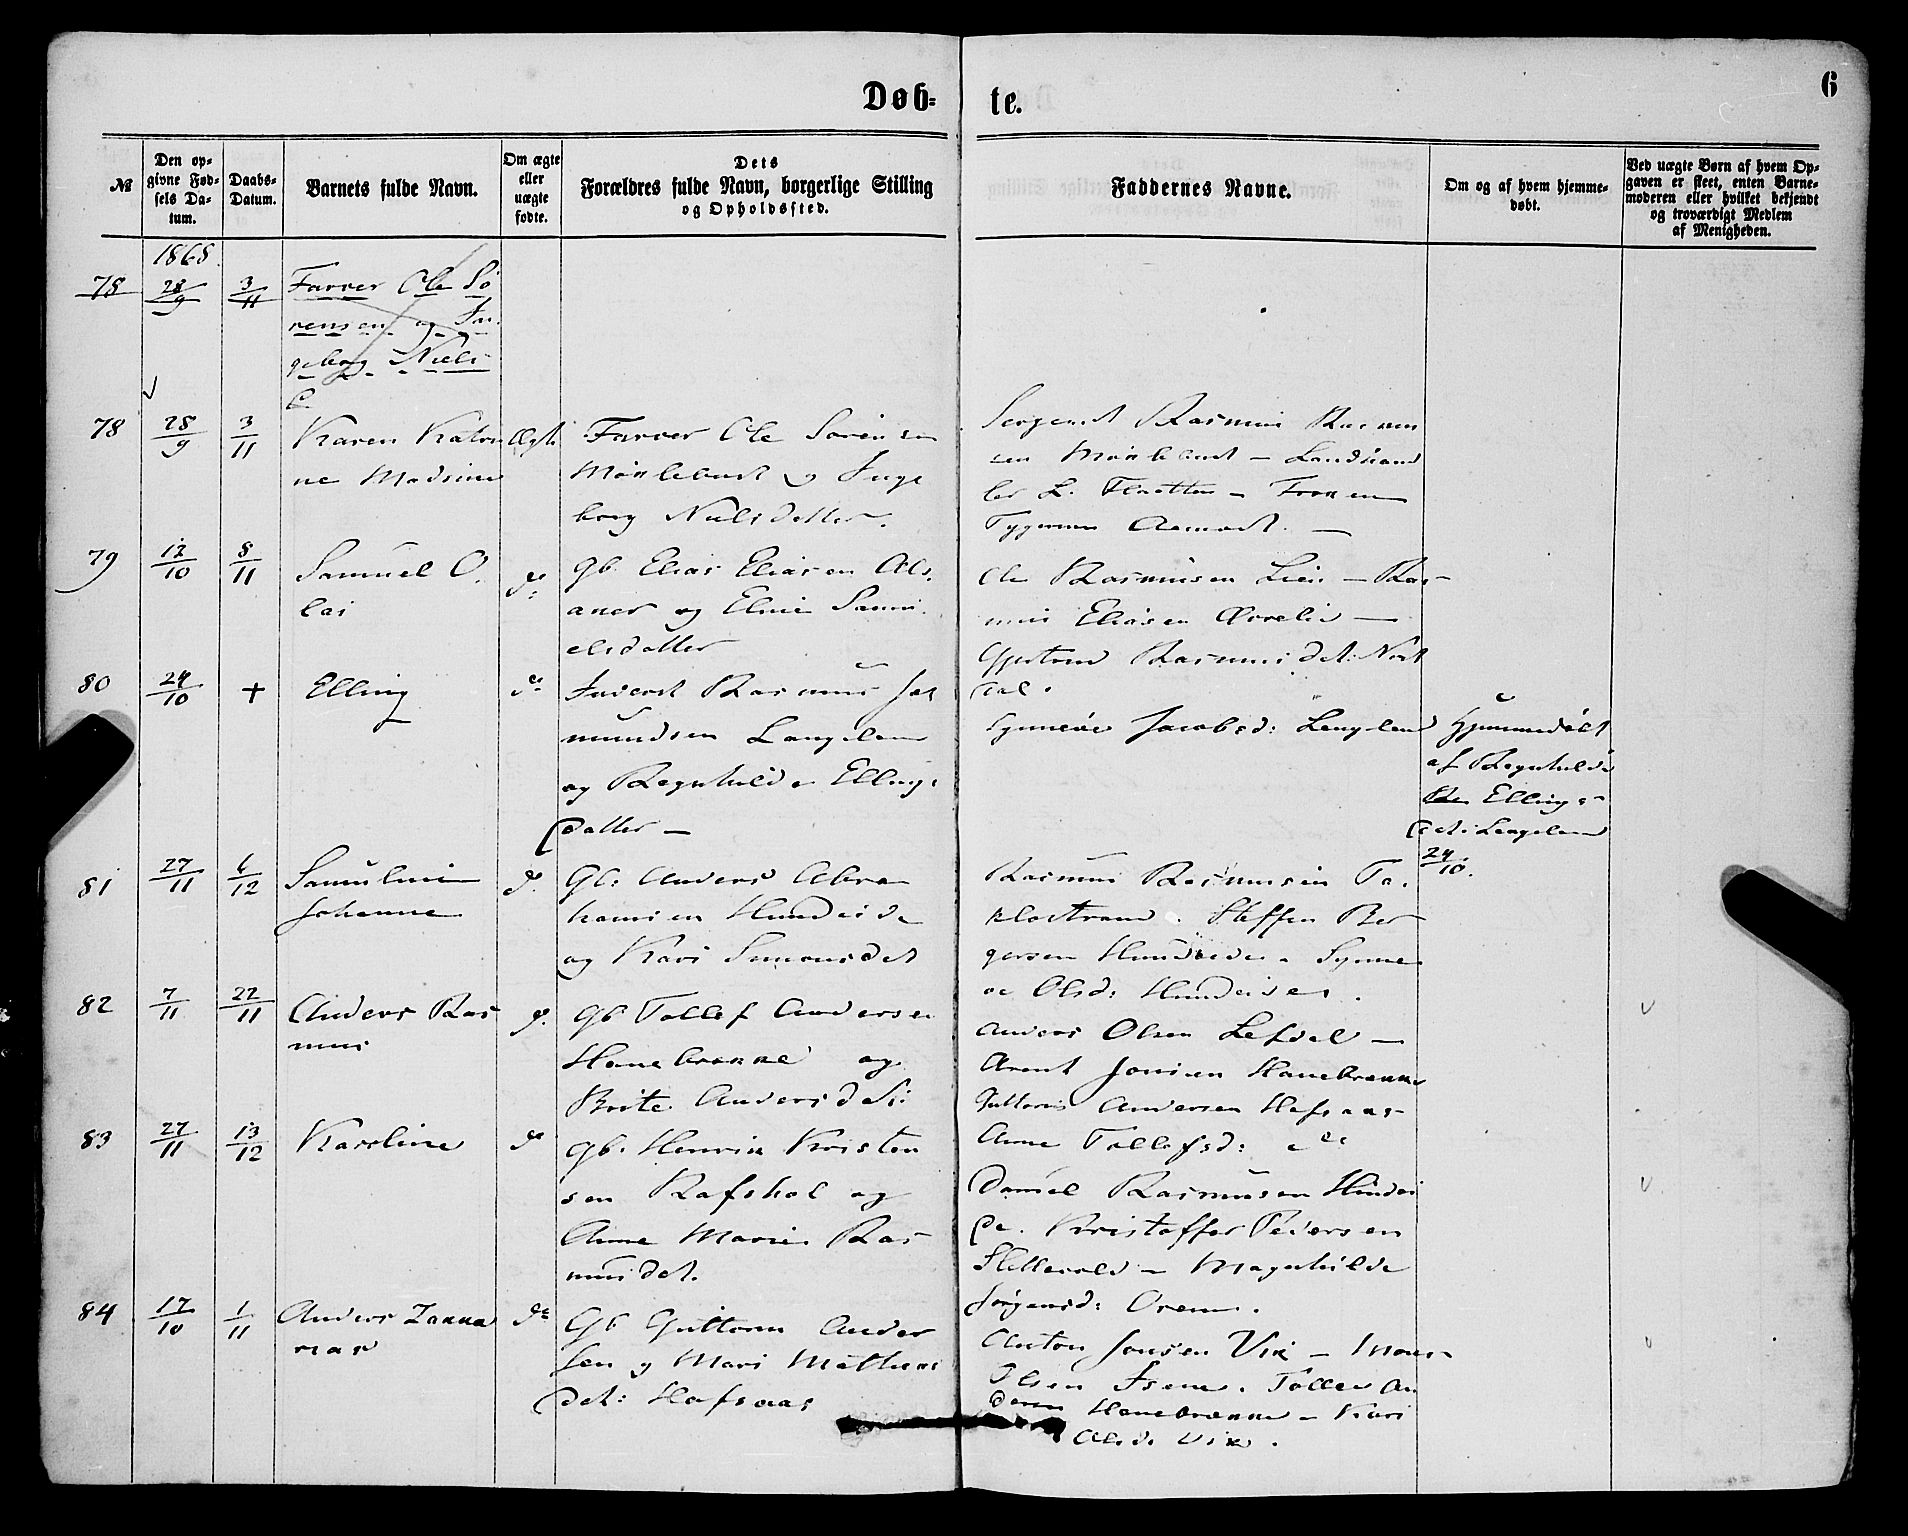 Døb-
te.
6
№
Den op-
givne Fød-
sels Da-
tum.
Daabs-
Datum.
Barnets fulde Navn.
Om ægte
eller
uægte
fødte.
Dets
Forældres fulde Navn, borgerlige Stilling
og Opholdssted.
Faddernes Navne.
Om og af hvem hjemme-
døbt.
Ved uægte Børn af hvem Op-
gaven er skeet, enten Barne-
moderen eller hvilket bekjendt
og troværdigt Medlem
af Menigheden.
1868
78 28/9 3/11 Farver Ole Sö
rensen og In
geborg Niels
78 28/9 3/11 Karen Katri
ne Madsine
Ægte
Farver Ole Sörensen
og Inge
borg Nielsdatter.
Sergeant Rasmus Rasmus
sen
79 12/10 8/11 Samuel O.
lai
do
Gb Elias Eliasen
og Eline Samu
elsdatter
Ole Rasmusen Lien – Ras-
mus Eliasen
Rasmusdet:
80 24/10 + Elling
do
Inderst Rasmus Jet
mundsen Langeland
og Ragnhilde Ellings
datter –
Synneve Jacobsd: Langeland
Hjemmedöbt
af Ragnhilde
Ellings-
det: Langeland
24/10.
81 27/11 6/12 Samuline
Johanne
do
Gb: Anders Abra
hamsen Hundeide
og Kari Simonsdet
Rasmus Rasmusen Ta.
klostrand. Steffen Ber
gersen Hundeide. Synne
ve Olsd: Hundeide.
82 7/11 22/11 Anders Ras
mus
do
Gb Tollef Andersen
Hanebrenne og
Brite Andersdet:
Anders Olsen Lefdal –
Arent Jonsen Hanebrenne
Guttorm Andersen Hafsaas
Anne Tollefsd: do
83 27/11 13/12 Karoline
do
Gb. Henrik Kristen
sen Rafshol og
Anne Marie Ras
musdet.
Daniel Rasmusen Hundei
de. Kristoffer Pedersen
– Magnhilde
Jørgensd:
84 17/10 1/11 Anders Zanna
rias
do
Gb Guttorm Ander
sen og Mari Mathias
det: Hafsaas
Anton Jonsen Vik – Mons
Olsen Isene. Tollev An
dersen Hanebrenne – Kari
Olsd: Vik.